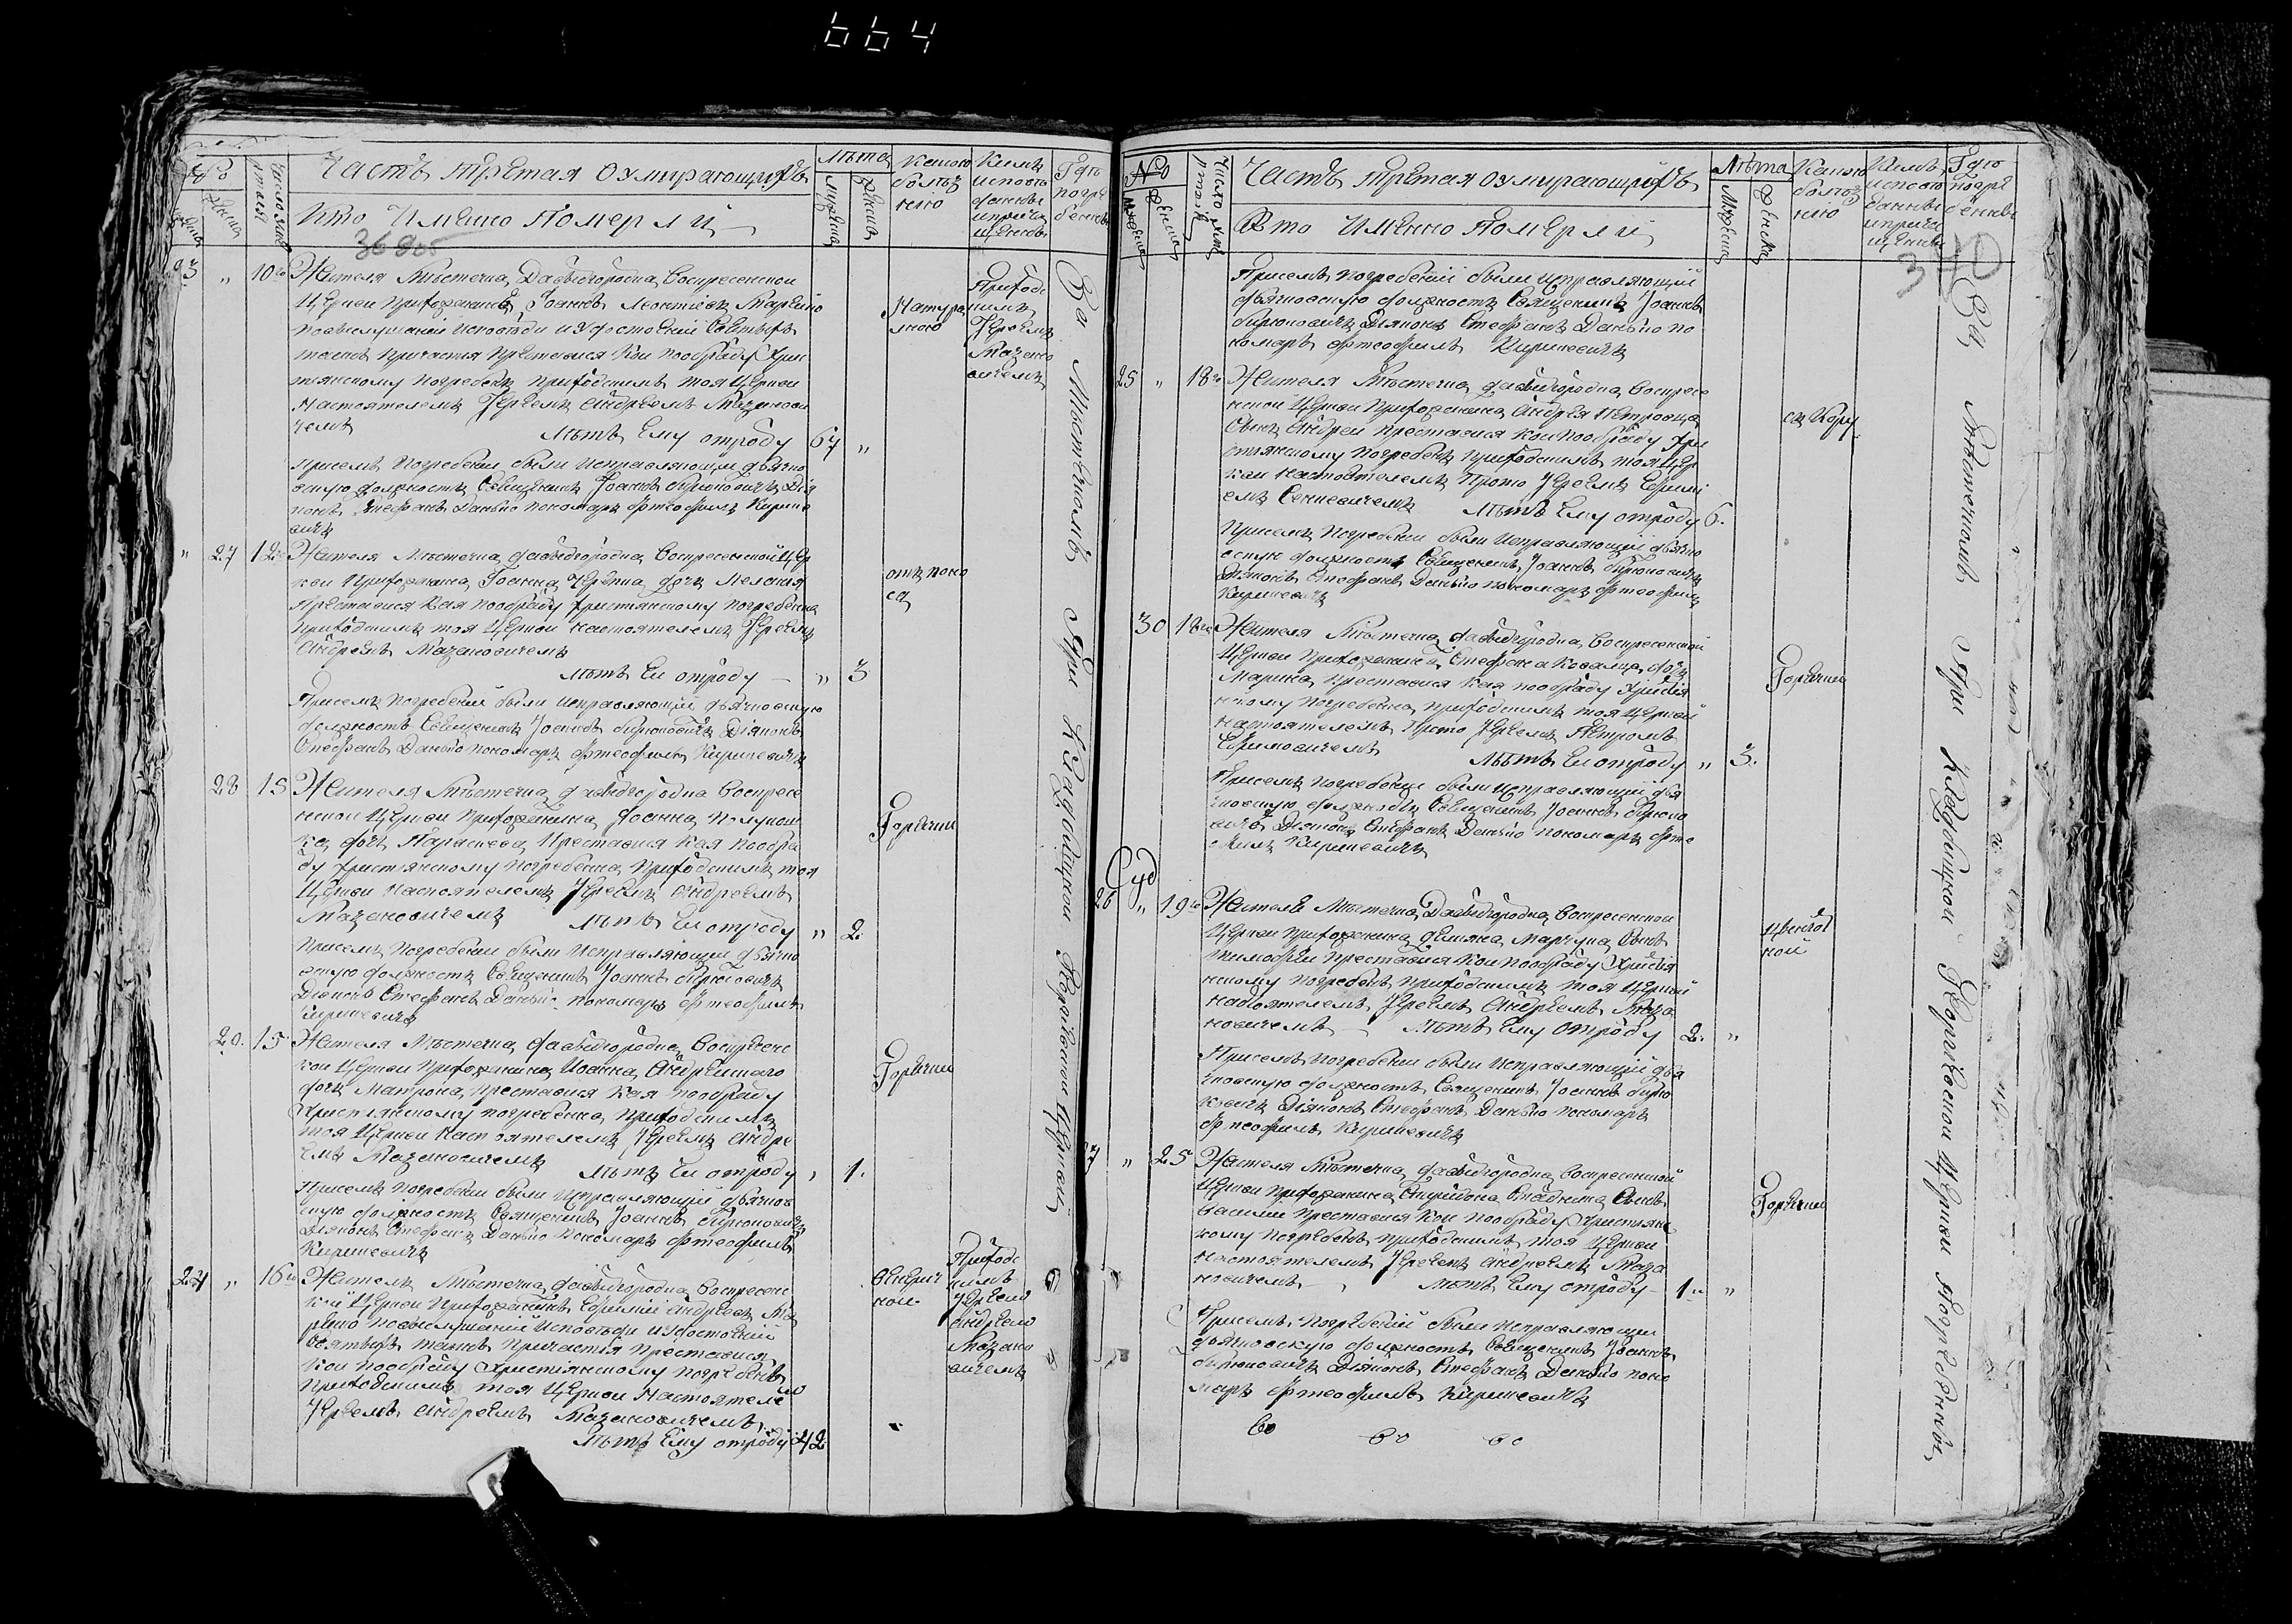 664
№
Часть третая о умирающихъ
Кто Именно Померли
Лѣта
Какою болѣзнію
Кимъ исповѣданны и причащенны
Где погребенны
36
10 Жителя Мѣстечка Давыдгородка Воскресенской
Церкви прихожанинъ Іоаннъ Леонтіевъ
по выслушаніи исповѣди и удостоеніи Святыхъ
таинъ причастія преставися кои по обряду Хрис
тянскому погребенъ приходскимъ тоя Церкви
Настоятелемъ Іереемъ Андреемъ Мазанови
чемъ Лѣтъ Ему отроду 67 "
Присемъ Погребении были исправляющи дьячко
вскую должность Священникъ Іоаннъ Бирюковичъ Дія
конъ Стефанъ Данько пономарь Фтеофилъ Кирке
вичъ
Натура
льною
Приходс
кимъ
Іереемъ
Мазано
вичемъ
" 27 12 Жителя Мѣстечка Давыдгородка Воскресенской Цер
кви Прихожанина Іоанна дочь Мелания
Преставися кая по обряду Христянскому погребенна
приходскимъ тоя Церкви настоятелемъ Іереемъ
Андреемъ Мазановичемъ
Лѣтъ Еи отроду — " 3
Присемъ погребении были исправляющий дьячковскую
должность Священникъ Іоаннъ Бирюковичъ Діяконъ
Стефанъ Данько пономарь Фтеофилъ Киркевичъ
отъ поно
са
28 15 Жителя Мѣстечка Давыдгородка Воскресе
нской Церкви прихожанина Іоанна
дочь Параскева Преставися кая по обря
ду христянскому погребенна приходскимъ тоя
Церкви настоятелемъ Іереемъ Андреемъ
Мазановичемъ Лѣтъ Еи отроду " 2.
Присемъ Погребении были исправляющий дьячко
вскую должность Священникъ Іоаннъ Бирюковичъ
Діяконъ Стефанъ Данько пономарь Фтеофилъ
Киркевичъ
Горячки
15 Жителя Мѣстечка Давыдгородка Воскресенс
кой Церкви Прихожанина Иоанна
дочь Матрона преставися кая по обряду
Христянскому погребенна приходскимъ
тоя Церкви настоятелемъ Іереемъ Андре
емъ Мазановичемъ Лѣтъ Еи отроду " 1.
Присемъ погребении были исправляющий дьячков
скую должность Священникъ Іоаннъ Бирюковичъ
Діяконъ Стефанъ Данько пономарь Фтеофилъ
Киркевичъ
Горячки
24 " 16 Житель Мѣстечка Давыдгородка Воскресенс
кой Церкви Прихожанинъ Ефимий Андреевъ
по выслушании исповѣди и удостоении
Святыхъ таинъ причастія преставися
кои по обряду Христіянскому погребенъ
Приходскимъ тоя Церкви Настоятелемъ
Іереемъ Андреемъ Мазановичемъ
Лѣтъ Ему отроду 42
Приходс
кимъ
Іереемъ
Андреемъ
Мазано
вичемъ
За Мѣстечкомъ При Кладбищной Георгіевской Церкви
№
Число
Часть третая о умирающихъ
Кто Именно Померли
Лѣта
Какою болѣзнію
Кимъ исповѣданны и причащенны
Где погребенны
Присемъ погребении были исправляющий
дьячковскую должность Священникъ Іоаннъ
Бирюковичъ Діяконъ Стефанъ Данько по
номарь Фтеофилъ Киркевичъ
25 " 18 Жителя Мѣстечка Давыдгородка Воскресе
нской Церкви Прихожанина Андрея Петровца
Сынъ Андреи преставися кои по обряду Хри
стянскому погребенъ приходскимъ тоя Цер
кви настоятелемъ Прото Іереемъ
Лѣтъ Ему отроду 6.
Присемъ погребении были исправляющий дьячко
вскую должность Священникъ Іоаннъ Бирюковичъ
Діяконъ Стефанъ Данько пономарь Фтеофилъ
Киркевичъ
30 18 Жителя Мѣстечка Давыдгородка Воскресенской
Церкви прихожанина Стефана Ковальца дочь
Марина преставися кая по обряду Христія
нскому погребенна приходскимъ тоя Церкви
настоятелемъ Прото Іереемъ Петромъ
Ефимовичемъ Лѣтъ Еи отроду " 3.
Присемъ погребении были исправляющий дья
чковскую должность Священникъ Іоаннъ Бирюко
вичъ Діяконъ Стефанъ Данько пономарь Фтео
филъ Киркевичъ
Горячки
26 " 19 Жителя Мѣстечка Давыдгородка Воскресенской
Церкви прихожанина Демяна Марчука Сынъ
Тимофеи преставися кои по обряду Христія
нскому погребенъ приходскимъ тоя Церкви
настоятелемъ Іереемъ Андреемъ Маза
новичемъ — Лѣтъ Ему отроду 2. "
Присемъ погребении были исправляющий дья
чковскую должность Священникъ Іоаннъ Бирю
ковичъ Діяконъ Стефанъ Данько пономарь
Фтеофилъ Киркевичъ
" 25 Жителя Мѣстечка Давыдгородка Воскресенской
Церкви прихожанина Спиридона Сынъ
Василии преставися кои по обряду Христянс
кому погребенъ приходскимъ тоя Церкви
настоятелемъ Іереемъ Андреемъ Маза
новичемъ — Лѣтъ Ему отроду — 1 "
Присемъ Погребении были исправляющии
дьячковскую должность Священникъ Іоаннъ
Бирюковичъ Діяконъ Стефанъ Данько поно
марь Фтеофилъ Киркевичъ
Горячки
За Мѣстечкомъ При Кладбищной Георгіевской Церкви погребенны